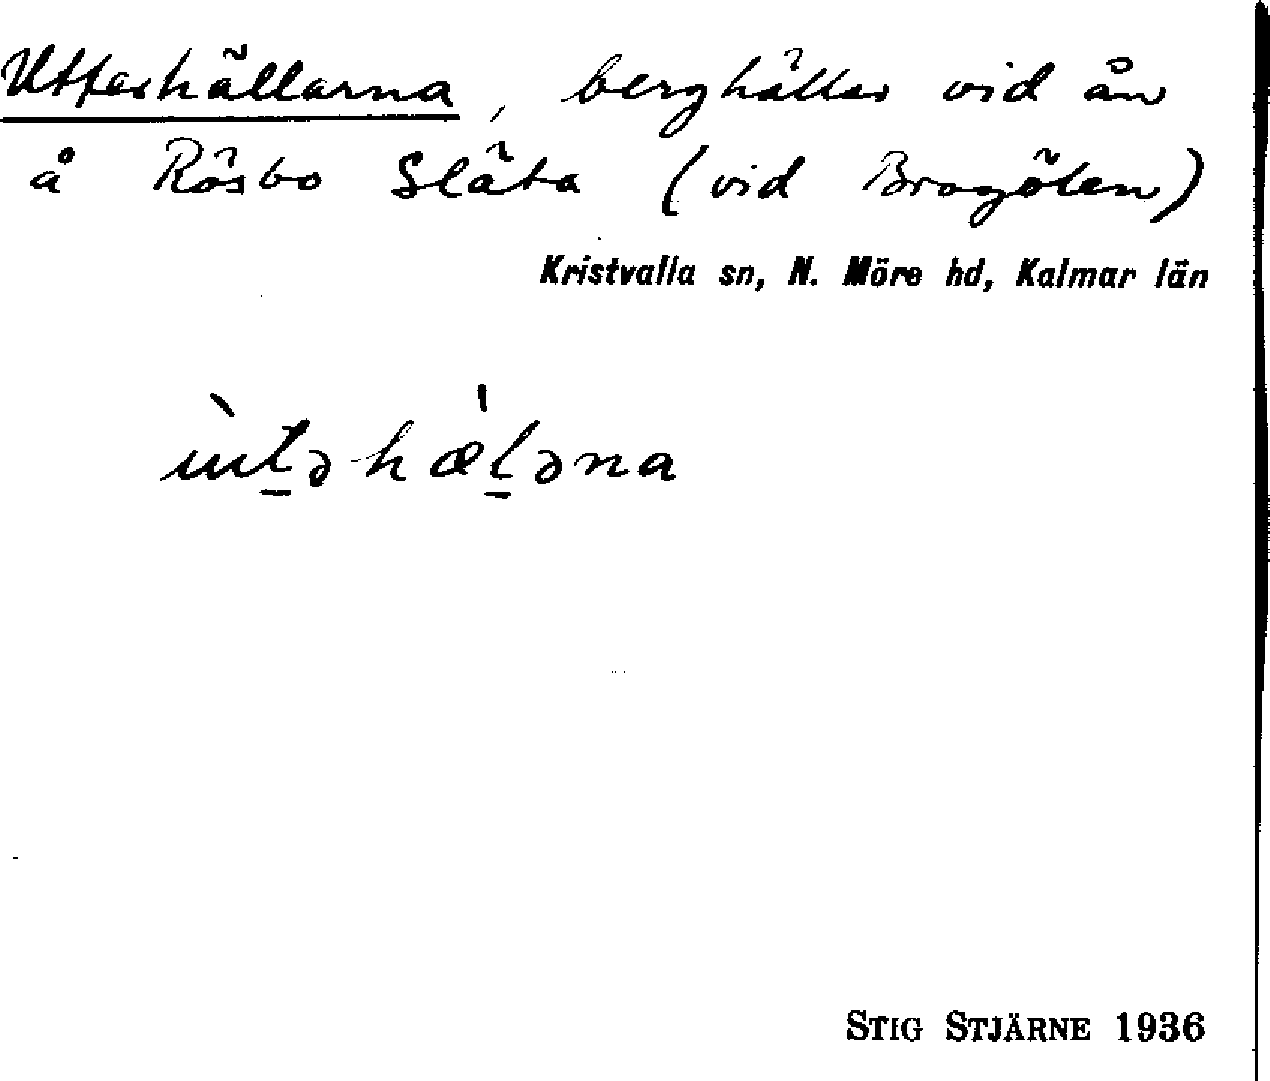 Utterhällarna, berghällar vid ån
å Rösbo Släta (vid Brogölen)
Kristvalla sn, N. Möre hd, Kalmar län
STIG STJÄRNE 1936